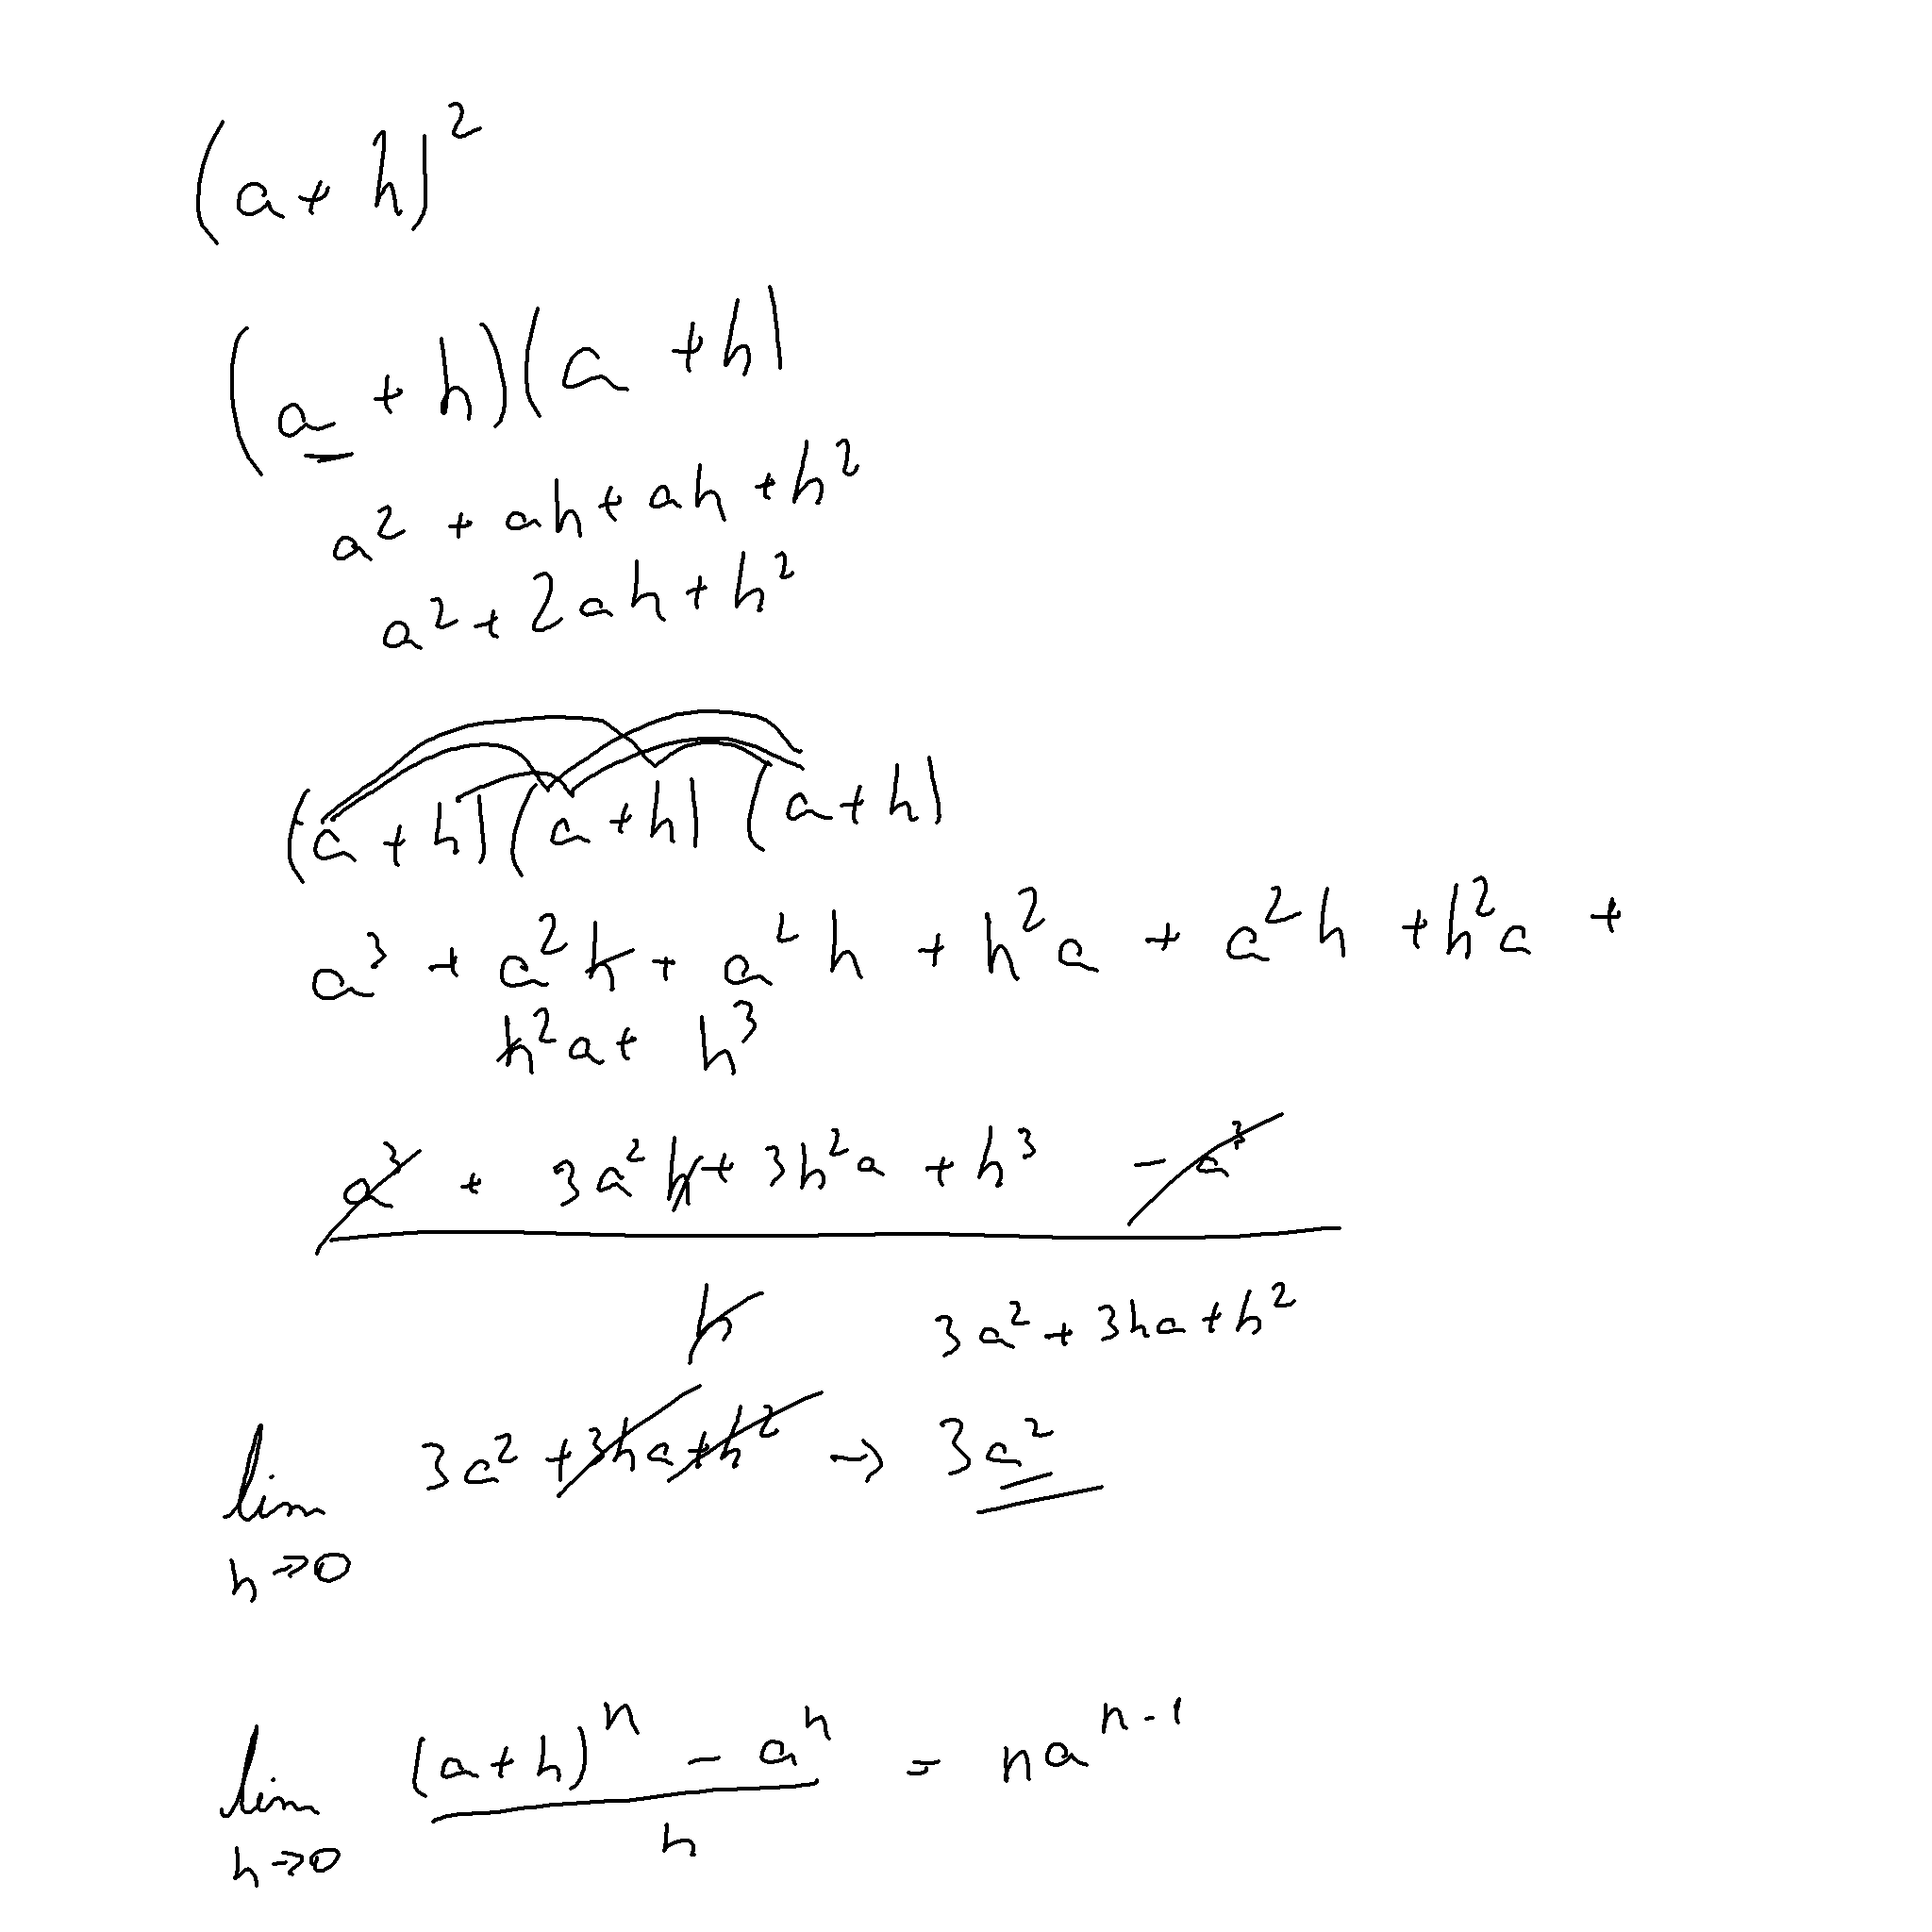 (a+h)²
(a+h)(a+h)
a²+ah+ah+h²
a²+2ah+h²
(a+h)(a+h)(a+h)
a³+a²h+a²h+h²a+a²h+h²a+
h²a+h³
a³+3a²h+3h²a+h³ - a³
h 3a²+3ha+h²
lim 3a²+3ha+h² → 3a²
h→0
lim (a+h)ⁿ - aⁿ = naⁿ⁻¹
h
h→0